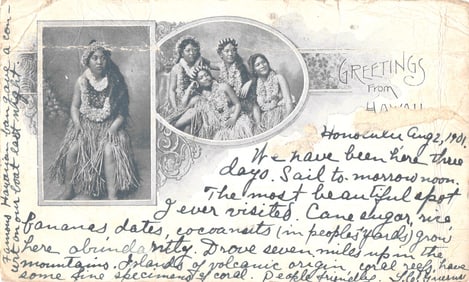 GREETINGS
From
HAWAII
Honolulu Aug 2, 1901.
We have been here three
days. Sail to-morrow noon.
The most beautiful spot
I ever visited. Cane sugar, rice
bananas dates, cocoanuts (in people's yards) grow
here abundantly. Drove seven miles up in the
mountains. Islands of volcanic origin, coral reefs, have
some fine specimens of coral. People friendly.
Famous Hawaiian band gave a con-
cert on our boat last night.